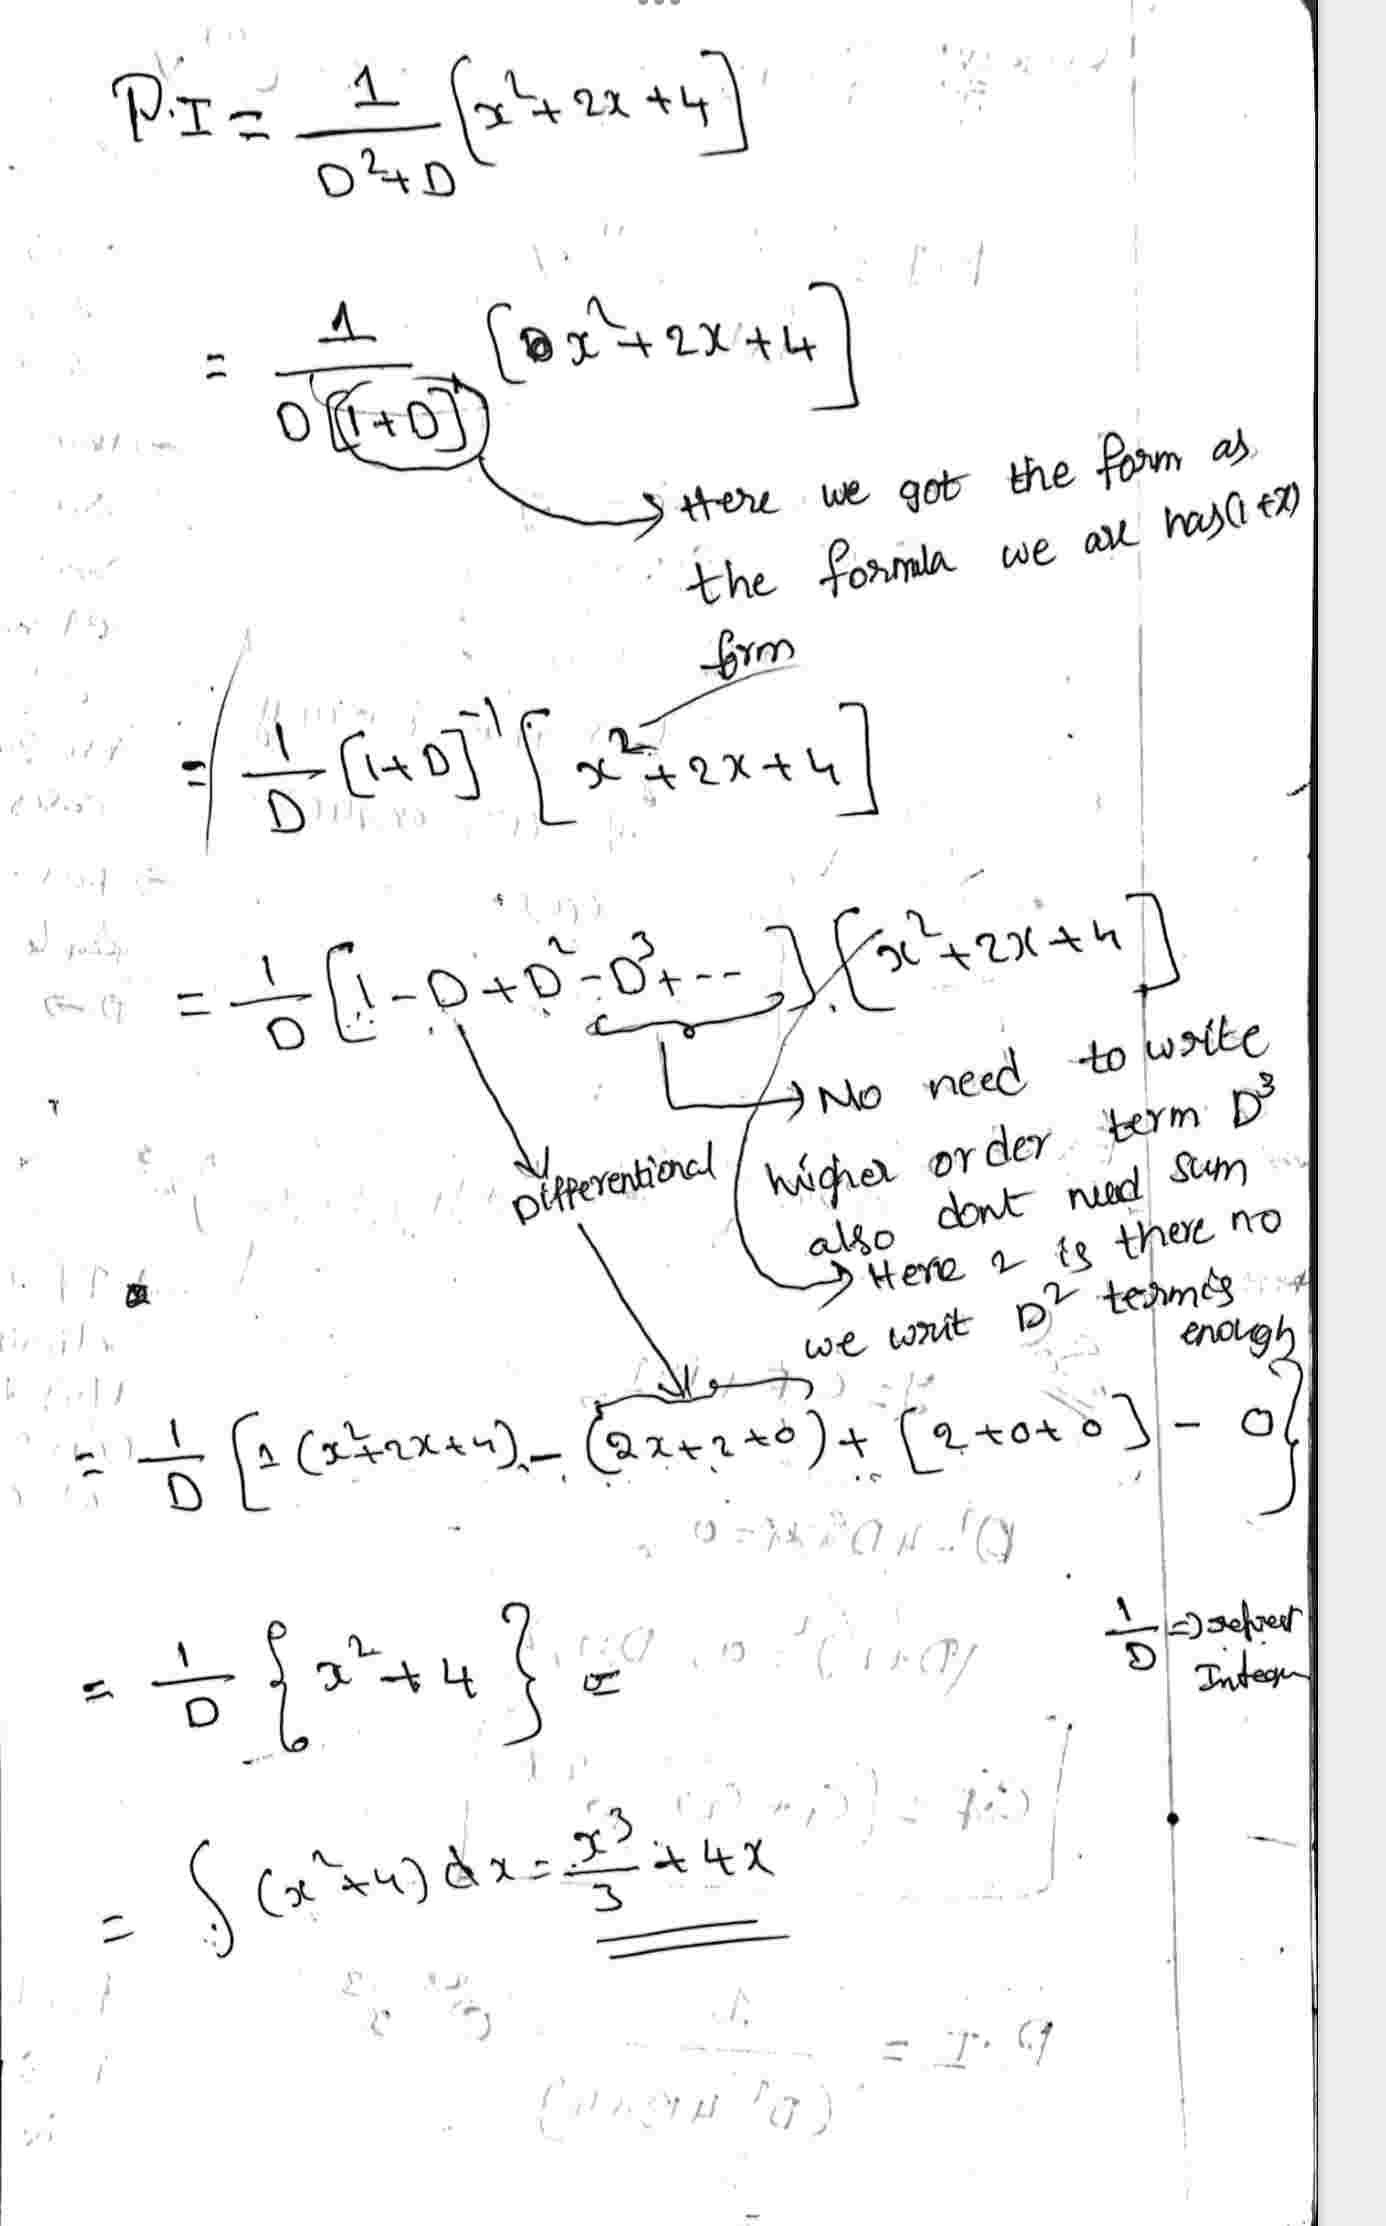 P.I = 1/(D²+D) [x²+2x+4]
= 1/(D[1+D]) [x²+2x+4]
Here we got the form as
the formula we are has(1+x)
form
= 1/D [1+D]⁻¹ [x²+2x+4]
= 1/D [1-D+D²-D³+--] [x²+2x+4]
No need to write
higher order term D³
Differentional
also dont need sum
Here 2 is there no
we writ D² termis
enough
= 1/D [1(x²+2x+4) - (2x+2+0) + [2+0+0] - 0}
= 1/D {x²+4} =
1/D ⇒
= ∫(x²+4)dx = x³/3 + 4x